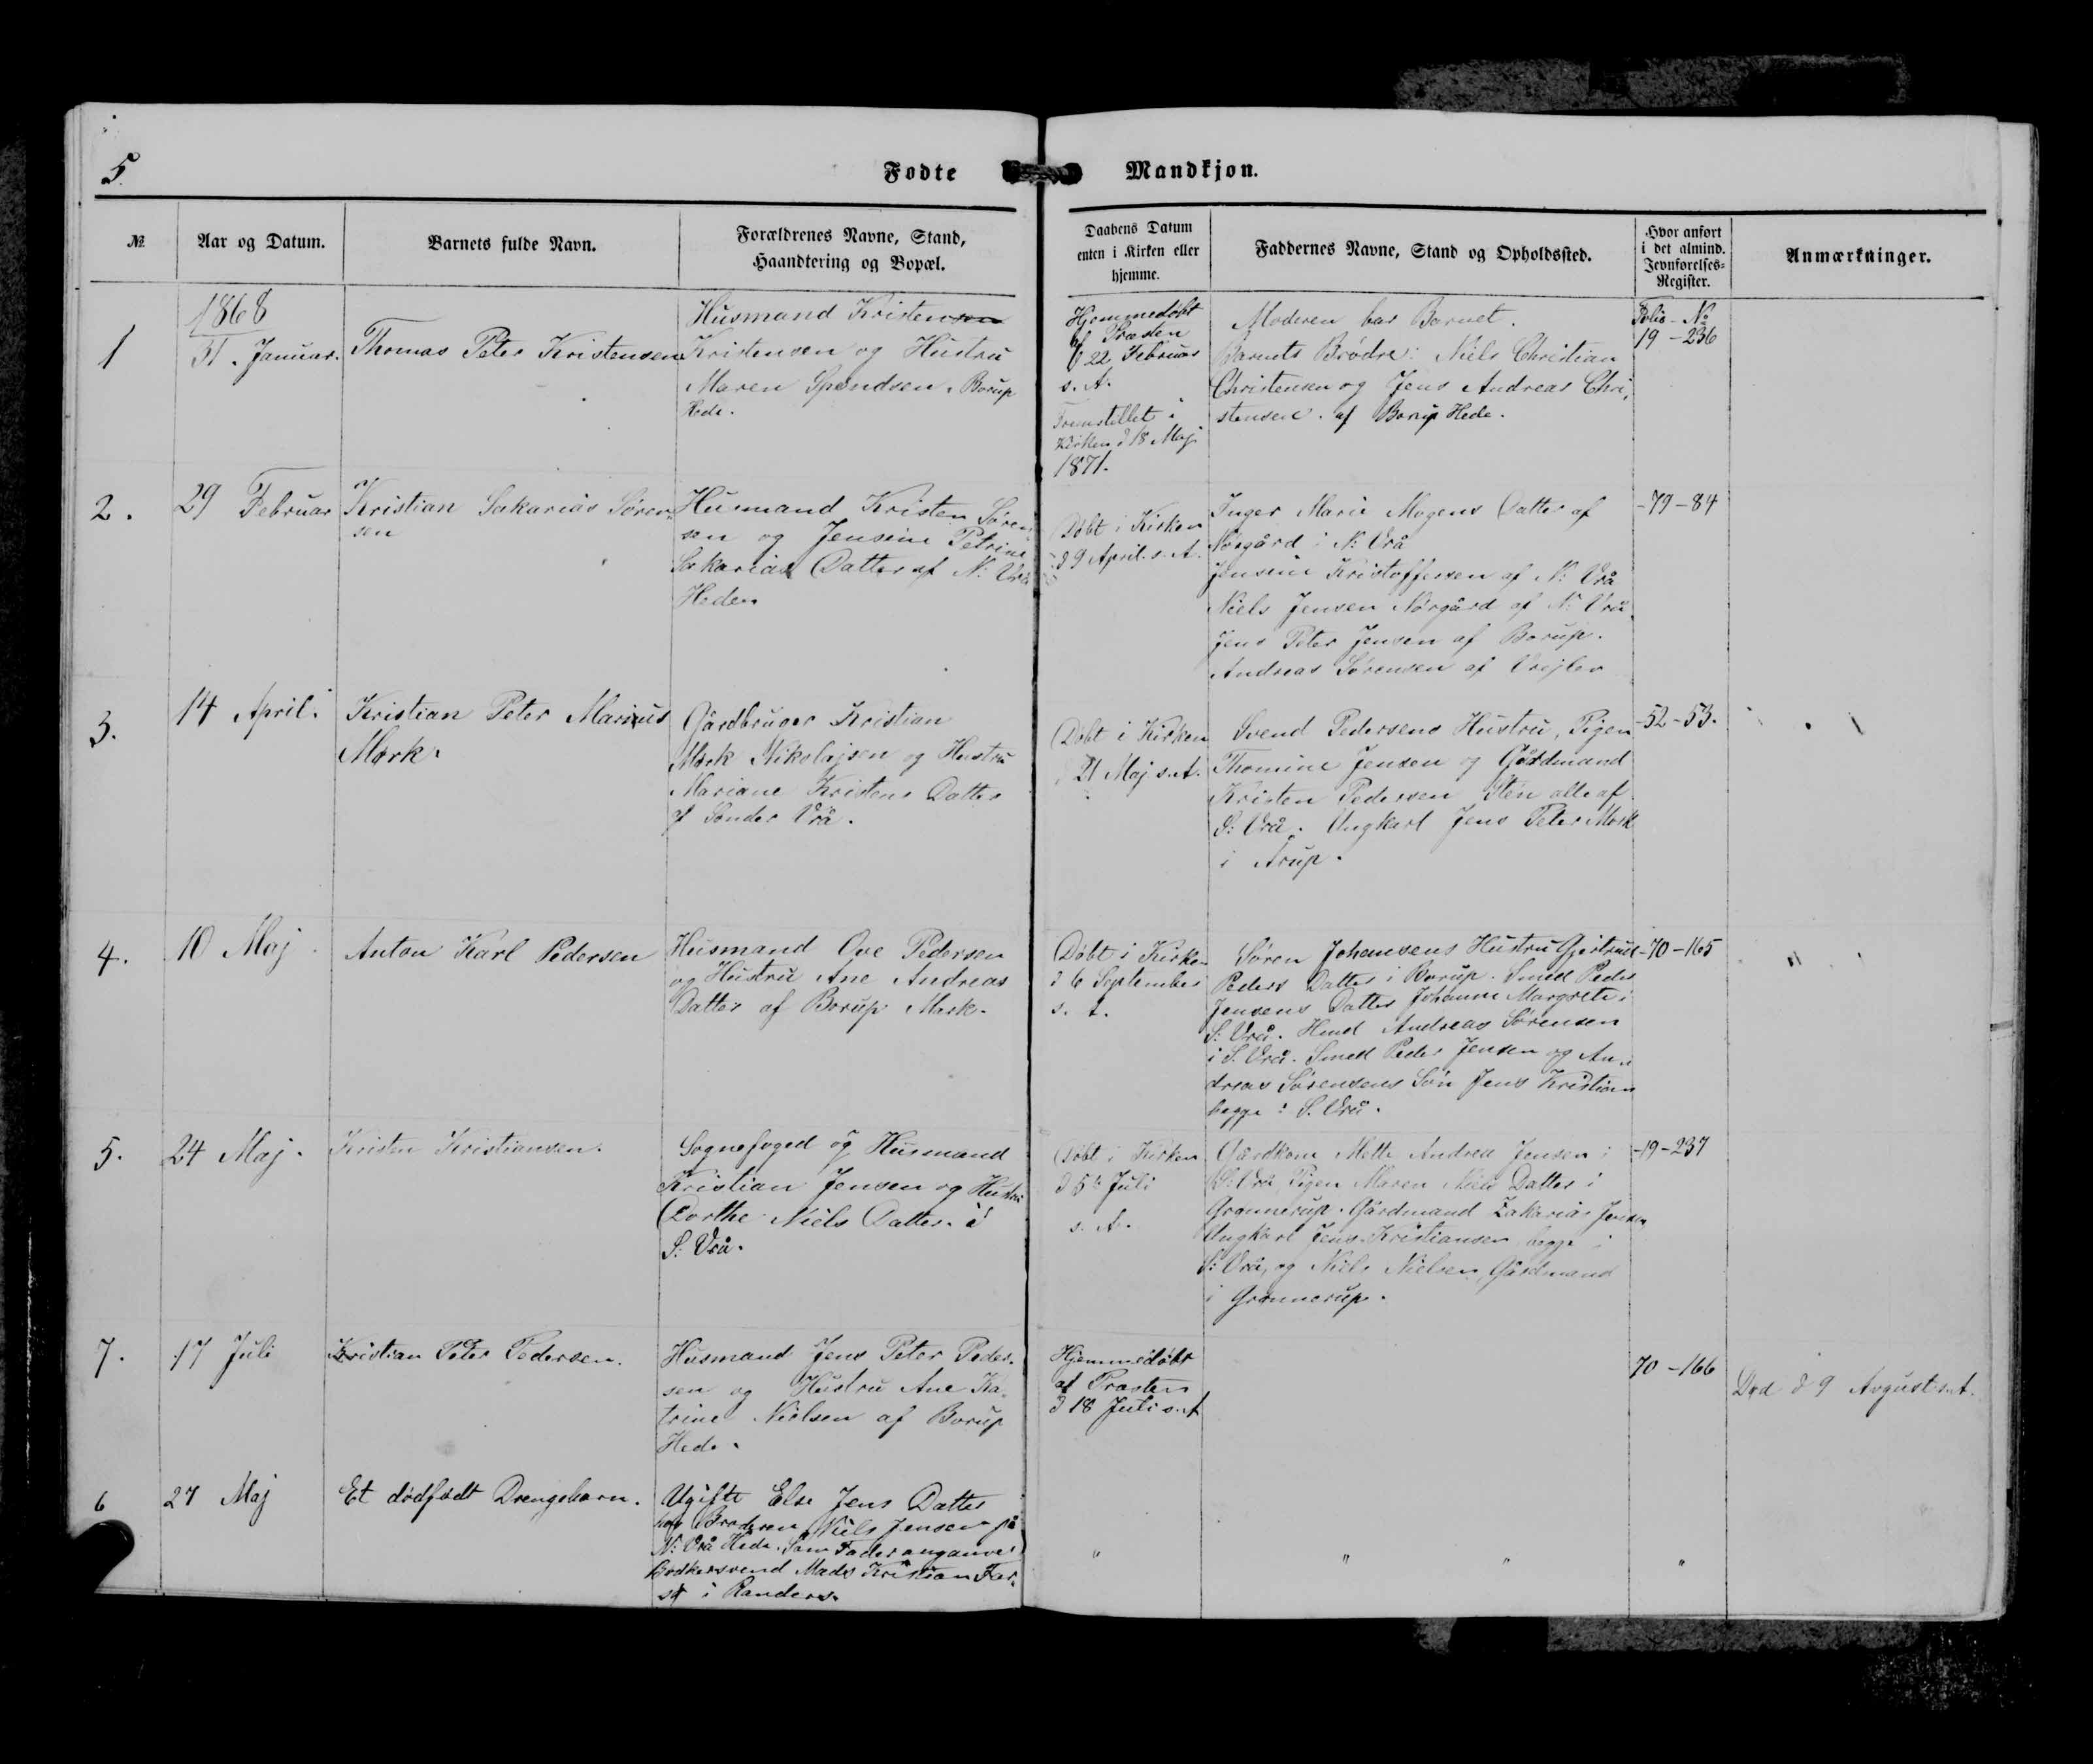 5.
Fødte
Mandkjøn.
№
Aar og Datum.
Barnets fulde Navn.
Forældrenes Navne, Stand,
Haandtering og Bopæl.
Daabens Datum
enten i Kirken eller
hjemme.
Faddernes Navne, Stand og Opholdssted.
Hvor anført
i det almind.
Jevnførelses-
Register.
Anmærkninger.
1
1868
31. Januar.
Thomas Peter Kristensen
Husmand Kristensen
Kristensen og Hustru
Maren Spendsen. Borup
Hede.
Hjemmedøbt
af Præsten
d 22 Februar
s. A.
Fremstillet i
Kirken d 18 Maj
1871.
Moderen bar Barnet.
Barnets Brødre: Niels Christian
Christensen og Jens Andreas Chri,
stensen. af Borup Hede.
Folio - No
19 - 236
2.
29 Februar
Kristian Sakarias Søren-
sen
Husmand Kristen Søren
sen og Jensine Petrine
Sakarias Datter af N: Vrå
Heden
Døbt i Kirken
d 9 April s. A.
Inger Marie Mogens Datter af
Nørgård i N: Vrå
Jensine Kristoffersen af N: Vrå
Niels Jensen Nørgård af N: Vrå,
Jens Peter Jensen af Borup.
Andreas Sørensen af Vejlev
-79-84
3.
14 April.
Kristian Peter Marius
Mørk.
Gårdbruger Kristian
Mørk Nikolajsen og Hustru
Mariane Kristens Datter
af Sønder Vrå.
Døbt i Kirken
d 21 Maj s. A.
Svend Pedersens Hustru, Pigen
Thomine Jensen og Gårdmand
Kristen Pedersen Sten alle af
S: Vrå. Ungkarl Jens Peter Mørk
i Årup.
-52-53.
4.
10 Maj
Anton Karl Pedersen
Husmand Ove Pedersen
og Hustru Ane Andreas
Datter af Borup Mark.
Døbt i Kirken
d 6 September
s. A.
Søren Johansens Hustru Gjertrud
Peders Datter i Borup. Smed Peder
Jensens Datter Johanne Margrete i
S: Vrå. Hmd Andreas Sørensen
i S. Vrå. Smed Peder Jensen og An-
dreas Sørensens Søn Jens Kristian
begge i S. Vrå.
-70-165
"
5.
24 Maj.
Kristen Kristiansen.
Sognefoged og Husmand
Kristian Jensen og Hustru
Dorthe Niels Datter. i
S: Vrå.
Døbt i Kirken
d 5te Juli
s. A.
Gårdkone Mette Andrea Jensen i
S: Vrå, Pigen Maren Niels Datter i
Grønnerup. Gårdmand Zakarias Jensen
Ungkarl Jens Kristiansen, begge i
S: Vrå, og Niels Nielsen, Gårdmand
i Grønnerup.
-19-237
7.
17 Juli
Kristian Peter Pedersen.
Husmand Jens Peter Peder-
sen og Hustru Ane Ka-
trine Nielsen af Borup
Hede.
Hjemmedøbt
af Præsten
d 18 Juli s. A
70-166
Død d 9 Avgust s. A.
6
27 Maj
Et dødfødt Drengebarn.
Ugifte Else Jens Datter
hos Broderen Niels Jensen på
N: Vrå Hede. Som Fader angaves
Bødkersvend Mads Kristian
i Randers.
"
"
"
"